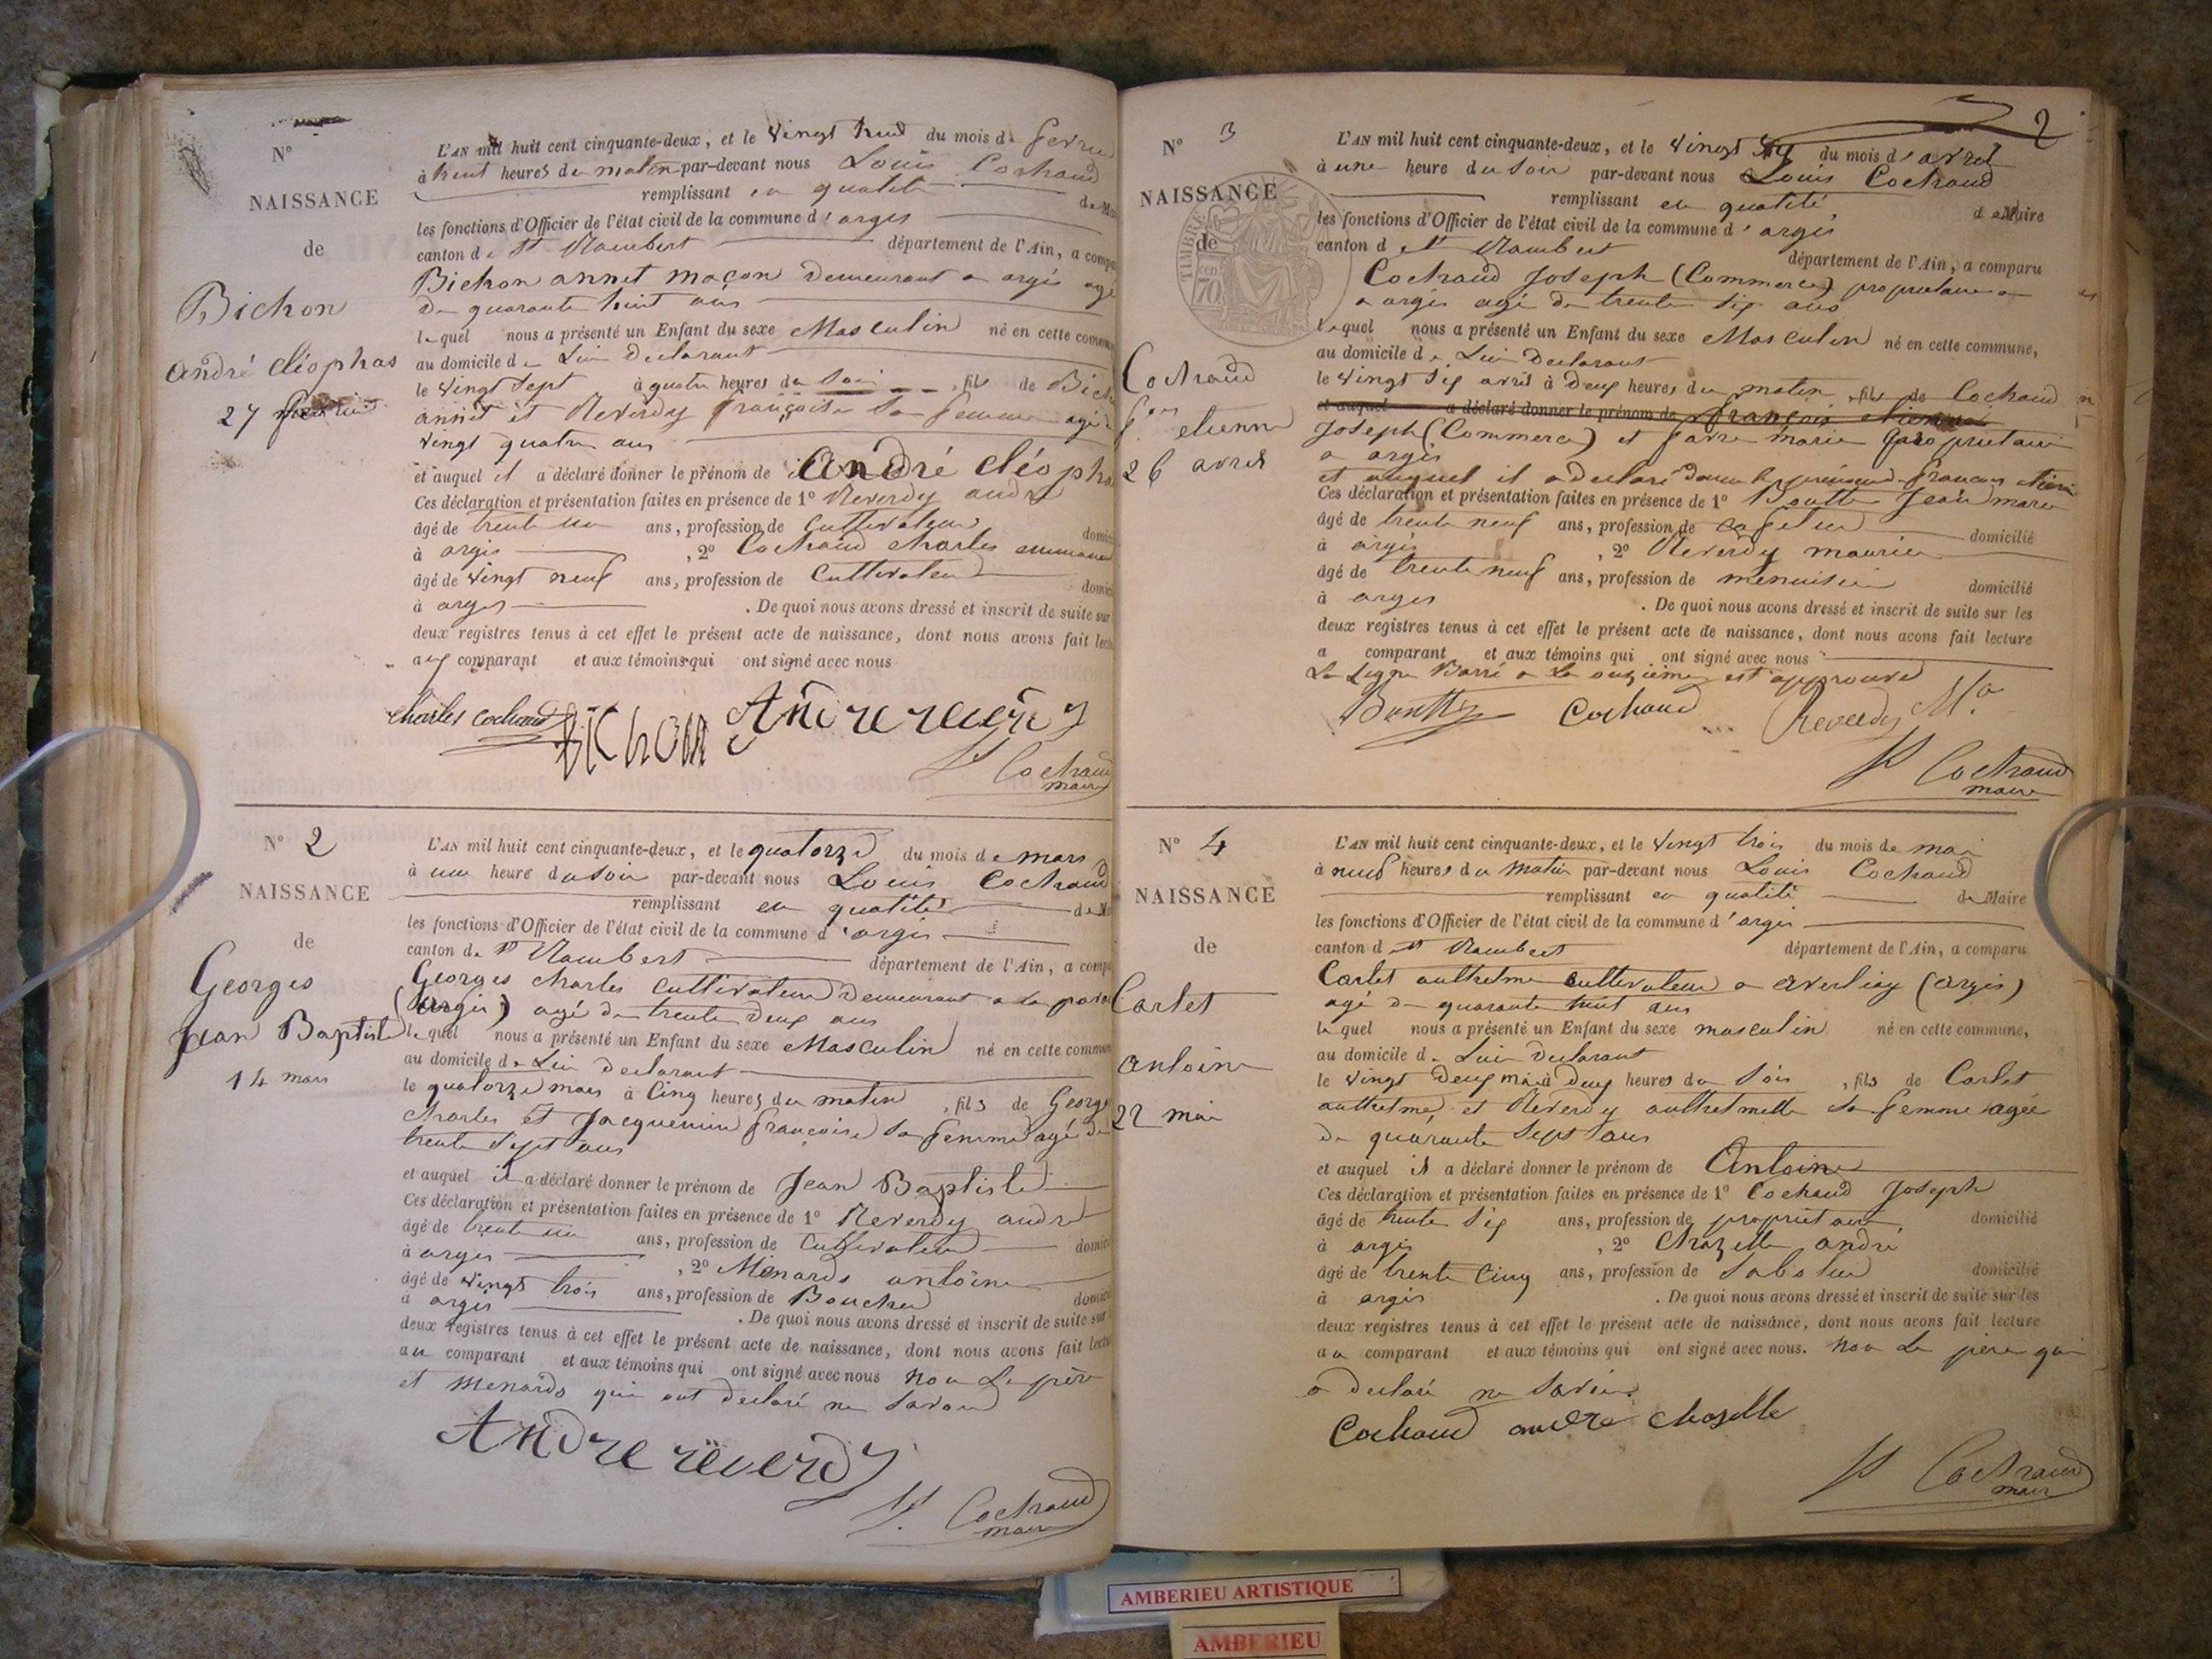 N°
NAISSANCE
de
Bichon
André Cléophas
27
L'AN mil huit cent cinquante-deux, et le vingt huit du mois de
à huit heures du matin par-devant nous Louis Cochaud
remplissant en qualité de
les fonctions d'Officier de l'état civil de la commune d'argis
canton de St Rambert département de l'Ain, a
Bichon annet maçon demeurant a argis agé
de quarante huit ans
lequel nous a présenté un Enfant du sexe Masculin né en cette
au domicile de Lui declarant
le vingt sept à quatre heures du soir, fils de
annet et Reverdy françoise sa femme agé
vingt quatre ans
et auquel il a déclaré donner le prénom de André
Ces déclaration et présentation faites en présence de 1° Reverdy andré
âgé de trente un ans, profession de Cultivateur
à argis, 2° Cochaud charles
âgé de vingt neuf ans, profession de Cultivateur
à argis. De quoi nous avons dressé et inscrit de suite sur
deux registres tenus à cet effet le présent acte de naissance, dont nous avons fait
aux comparant et aux témoins qui ont signé avec nous
charles cochaud BICHON Andre reverdy
Ls Cochaud
maire
N° 2
NAISSANCE
de
Georges
Jean Baptiste
14 mars
L'AN mil huit cent cinquante-deux, et le quatorze du mois de mars
à une heure du soir par-devant nous Louis Cochaud
remplissant en qualité de
les fonctions d'Officier de l'état civil de la commune d'argis
canton de St Rambert département de l'Ain, a
Georges charles cultivateur demeurant a la
(argis) agé de trente deux ans
lequel nous a présenté un Enfant du sexe Masculin né en cette
au domicile de Lui declarant
le quatorze mars à Cinq heures du matin, fils de
charles et Jacquemin françoise sa femme agé de
trente sept ans
et auquel il a déclaré donner le prénom de Jean Baptiste
Ces déclaration et présentation faites en présence de 1° Reverdy andré
âgé de trente un ans, profession de Cultivateur
à argis, 2° Menards antoine
âgé de vingt trois ans, profession de Boucher
à argis. De quoi nous avons dressé et inscrit de suite sur
deux registres tenus à cet effet le présent acte de naissance, dont nous avons fait
au comparant et aux témoins qui ont signé avec nous non Le père
et Menards qui ont declaré ne savoir
Andre reverdy
Ls Cochaud
maire
2
N° 3
NAISSANCE
de
TIMBRE
70
Cochaud
fois etienne
26 avril
L'AN mil huit cent cinquante-deux, et le vingt six du mois d'avril
à une heure du soir par-devant nous Louis Cochaud
remplissant en qualité de Maire
les fonctions d'Officier de l'état civil de la commune d'argis
canton d St Rambert département de l'Ain, a comparu
Cochaud Joseph (Commerce) proprietaire a
a argis agé de trente six ans
lequel nous a présenté un Enfant du sexe Masculin né en cette commune,
au domicile de Lui declarant
le vingt six avril à deux heures du matin, fils de Cochaud
et auquel a déclaré donner le prénom de françois etienne
Joseph (Commerce) et favre marie proprietaire
a argis
et auquel il a declaré donner le prénom de françois etienne
Ces déclaration et présentation faites en présence de 1° Jean marie
âgé de trente neuf ans, profession de domicilié
à argis, 2° Reverdy maurice
âgé de trente neuf ans, profession de menuisier domicilié
à argis. De quoi nous avons dressé et inscrit de suite sur les
deux registres tenus à cet effet le présent acte de naissance, dont nous avons fait lecture
a comparant et aux témoins qui ont signé avec nous
La Ligne Barré a la onzième est approuvé
Cochaud Reverdy Me
Ls Cochaud
maire
N° 4
NAISSANCE
de
Carlet
Antoine
22 mai
L'AN mil huit cent cinquante-deux, et le vingt trois du mois de mai
à neuf heures du matin par-devant nous Louis Cochaud
remplissant en qualité de Maire
les fonctions d'Officier de l'état civil de la commune d'argis
canton d St Rambert département de l'Ain, a comparu
Carlet anthelme cultivateur a (argis)
agé de quarante huit ans
lequel nous a présenté un Enfant du sexe masculin né en cette commune,
au domicile de Lui declarant
le vingt deux mai à deux heures du soir, fils de Carlet
anthelme et Reverdy anthelmette sa femme agée
de quarante sept ans
et auquel il a déclaré donner le prénom de Antoine
Ces déclaration et présentation faites en présence de 1° Cochaud Joseph
âgé de trente six ans, profession de proprietaire, domicilié
à argis, 2° Chazelle andré
âgé de trente Cinq ans, profession de Sabotier domicilié
à argis. De quoi nous avons dressé et inscrit de suite sur les
deux registres tenus à cet effet le présent acte de naissance, dont nous avons fait lecture
au comparant et aux témoins qui ont signé avec nous. non Le père qui
a declaré ne savoir
Cochaud andre chazelle
Ls Cochaud
maire
AMBERIEU ARTISTIQUE
AMBERIEU